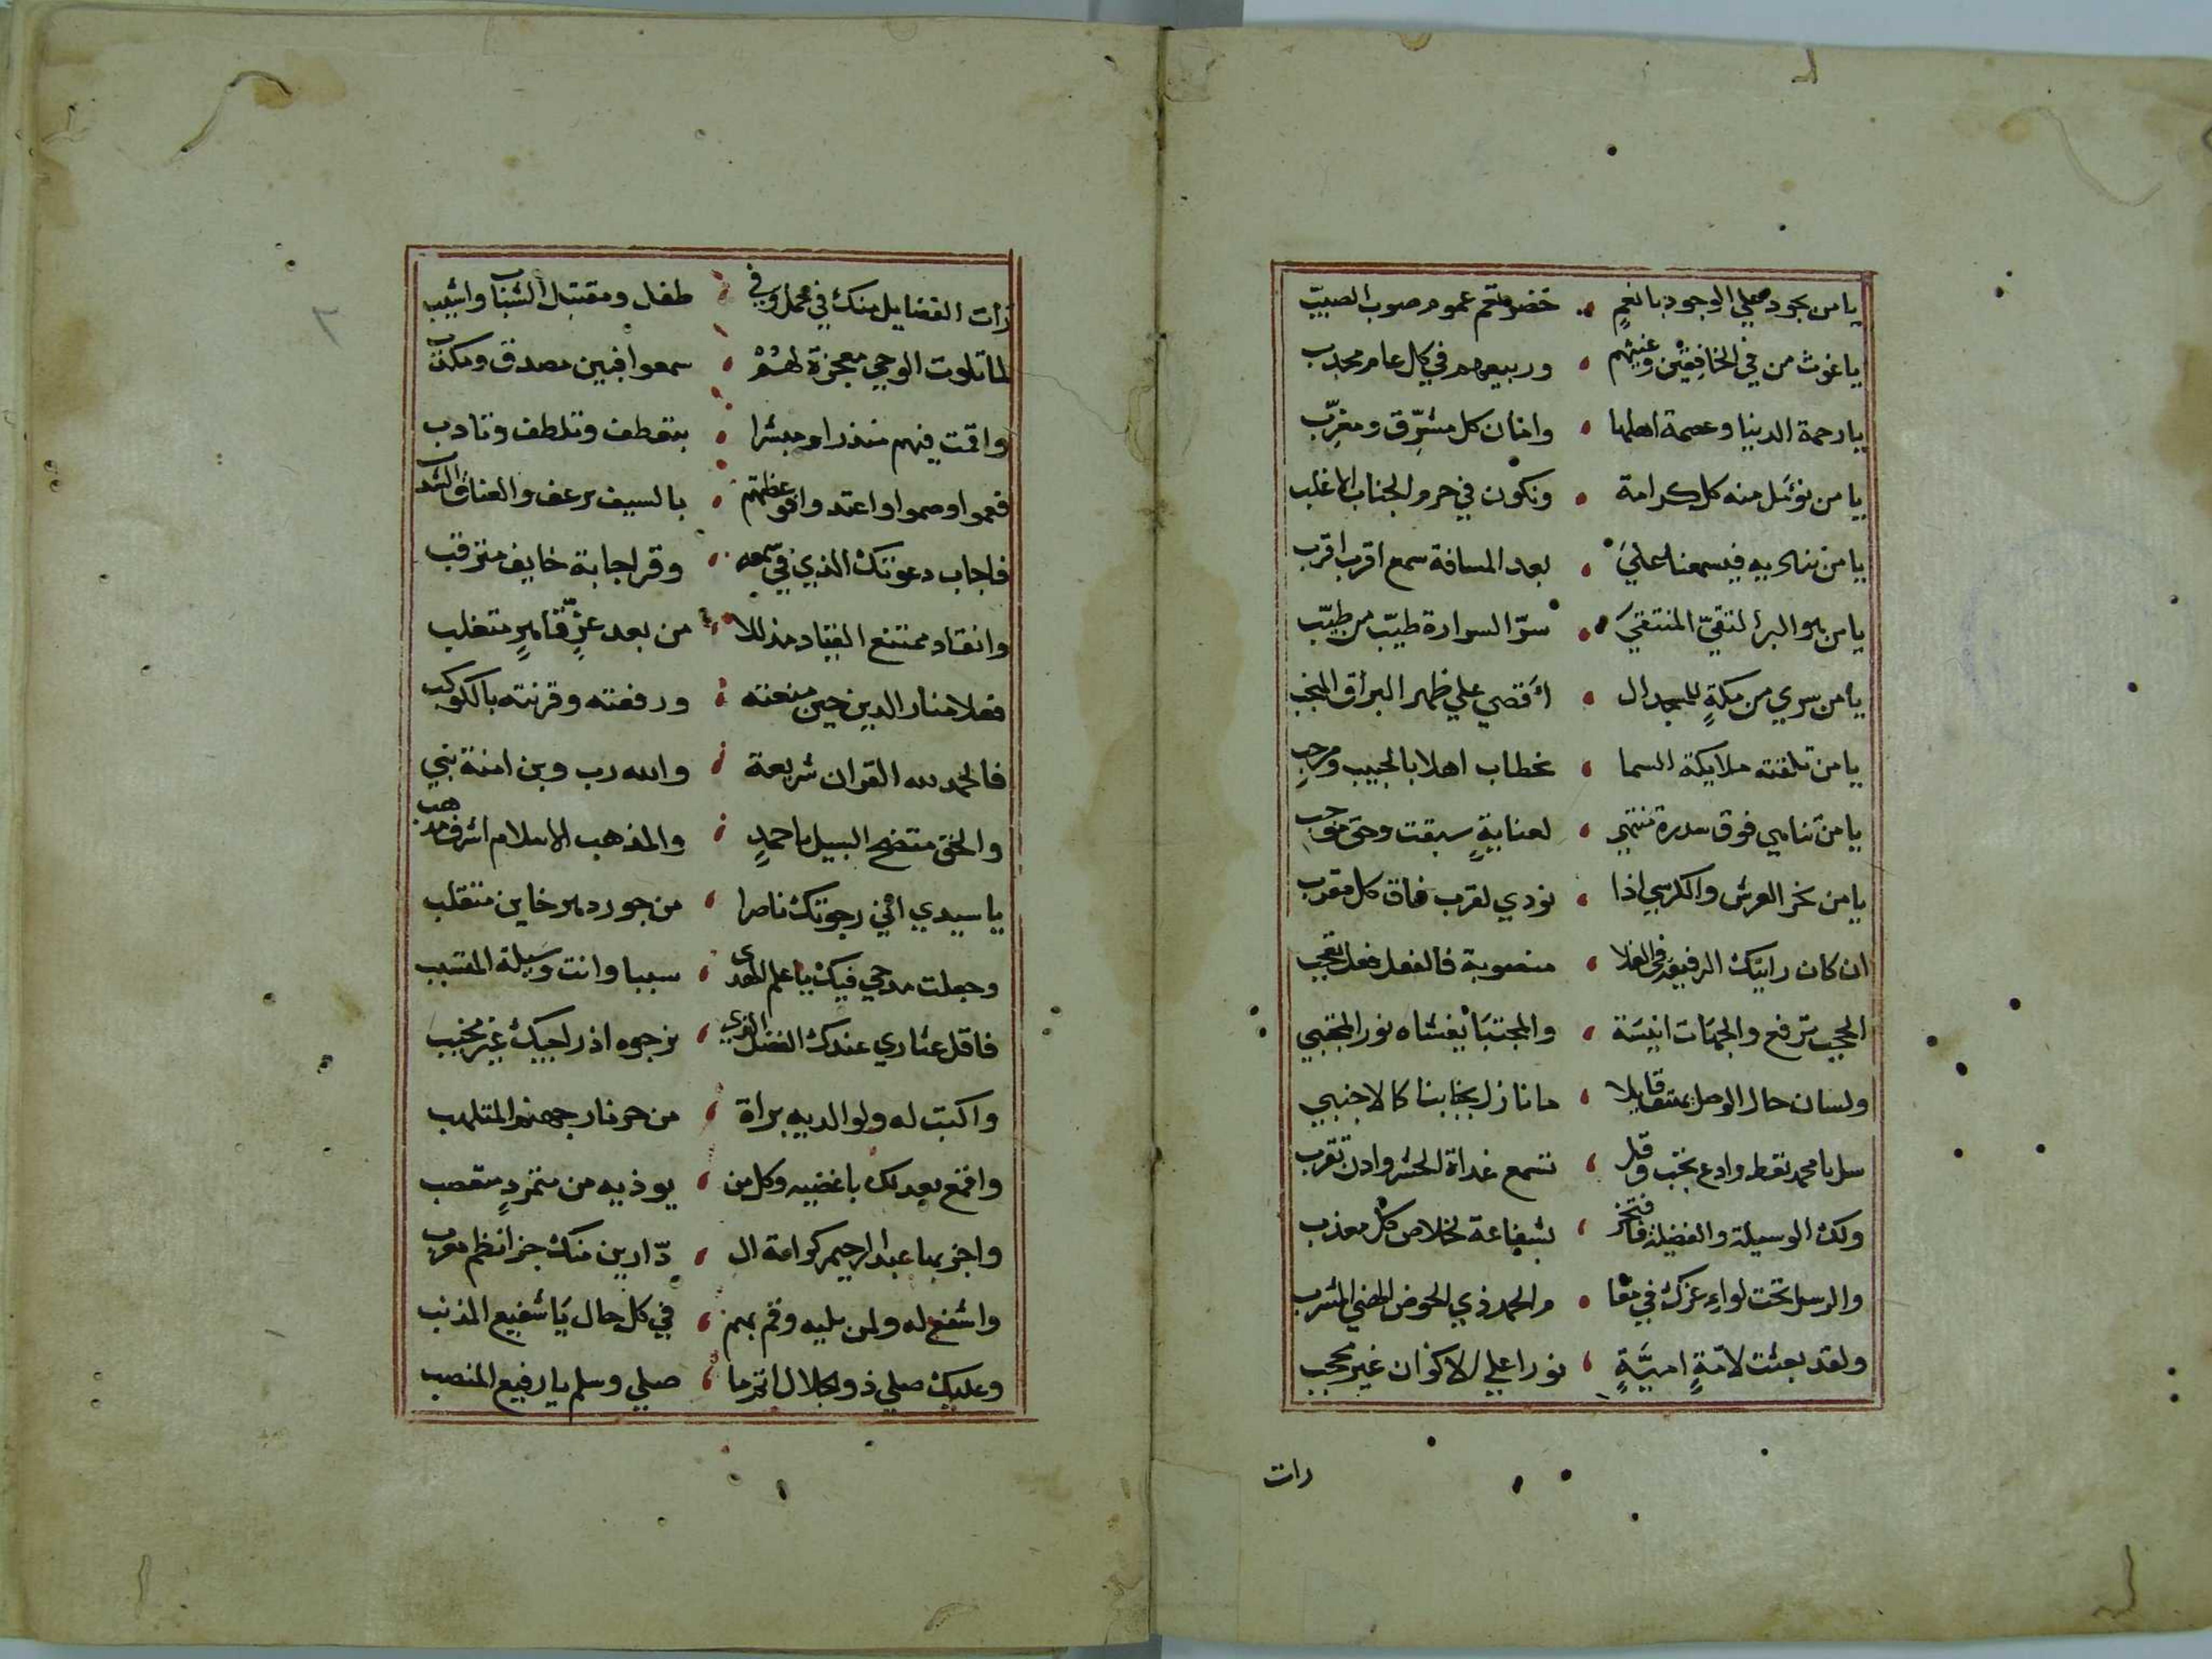 يا من يجود علي الوجود بانعم خضر تعم عموم صوب الصيب
يا غوث من في الخافقين وغيثهم وربيعهم في كل عام مجدب
يا رحمة الدنيا وعصمة اهلها وامان كل مشرّق ومغرّب
يا من نؤمل منه كل كرامة ونكون في حرم الجناب الاغلب
يا من نناديه فيسمعنا علي بعد المسافة سمع اقرب اقرب
يا من هو البر التقيّ المنتقي سرّ السرارة طيّب من طيّب
يا من سري من مكةٍ للمسجد ال أقصي علي ظهر البراق المنجب
يا من تلقته ملايكة السما بخطاب اهلا بالحبيب ومرحب
يا من تنامي فوق سدرة منتهي لعنايةٍ سبقت وحق موجب
يا من نحر العرش والكرسي اذا نودي لقرب فاق كل مقرب
ان كان رايتك الرفيعة في العلا منصوبة فالفعل فعل تعجب
الحجب ترفع والجهات انيسة والمجتبا يغشاه نور المجتبي
ولسان حال الوصل عنقا يلا ما نازل بجنابنا كالاجنبي
سل يا محمد تعط وادع تجب وقل تسمع غداة الحشر وادن تقرب
ولك الوسيلة والفضيلة فافتخر بشفاعة لخلاص كل معذب
والرسل تحت لواء عزك في مقا م الحمد ذي الحوض الهني المشرب
ولقد بعثت لامّةٍ اميّةٍ نورا علي الاكوان غير محجب
رات
رأت الفضايل منك في محمل وفي طفل ومقتبل الشباب واشيب
لما تلوت الوحي معجزة لهم سمعوا فبين مصدق ومكذب
واقمت فيهم منذرا ومبشرا بتعطف وتلطف وتادب
فعموا وصموا واعتدوا فوعظتهم بالسيف يرعف والعناق الشذب
فاجاب دعوتك الذي في سمعه وقر اجابة خايف مترقب
وانقاد ممتنع القياد مذللا من بعد عزٍّ قاهرٍ متغلب
فعلا منار الدين حين منعته ورفعته وقرنته بالكوكب
فالحمد لله القران شريعة والله رب وبن امنة نبي
والحق متضح السبيل باحمدٍ والمذهب الاسلام اشرف مذهب
يا سيدي اني رجوتك ناصرا من جور دهر خاين متقلب
وجعلت مدحي فيك يا علم الهدى سببا وانت وسيلة المتسبب
فاقل عثاري عندك الفضل الذي نرجوه اذ راجيك غير مخيب
واكتب له ولوالديه براة من حر نار جهنم المتلهب
واقمع بعدلك باغضيه وكل من يوذيه من متمردٍ متعصب
واجز بها عبد الرحيم كرامة ال دّارين منك جزا نظم معرب
واشفع له ولمن يليه وقم بهم في كل حال يا شفيع المذنب
وعليك صلي ذو الجلال اتمّ ما صلي وسلم يا رفيع المنصب
٢